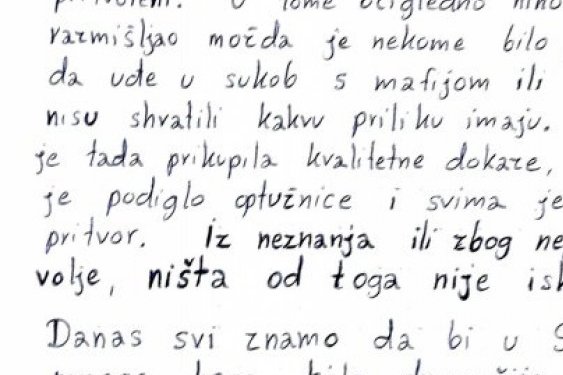 tome očigledno
razmišljao možda je nekome bilo
da uđe u sukob s mafijom ili
nisu shvatili kakvu priliku imaju.
je tada prikupila kvalitetne dokaze,
je podiglo optužnice i svima je
pritvor. Iz neznanja ili zbog ne
volje, ništa od toga nije isk
Danas svi znamo da bi u S